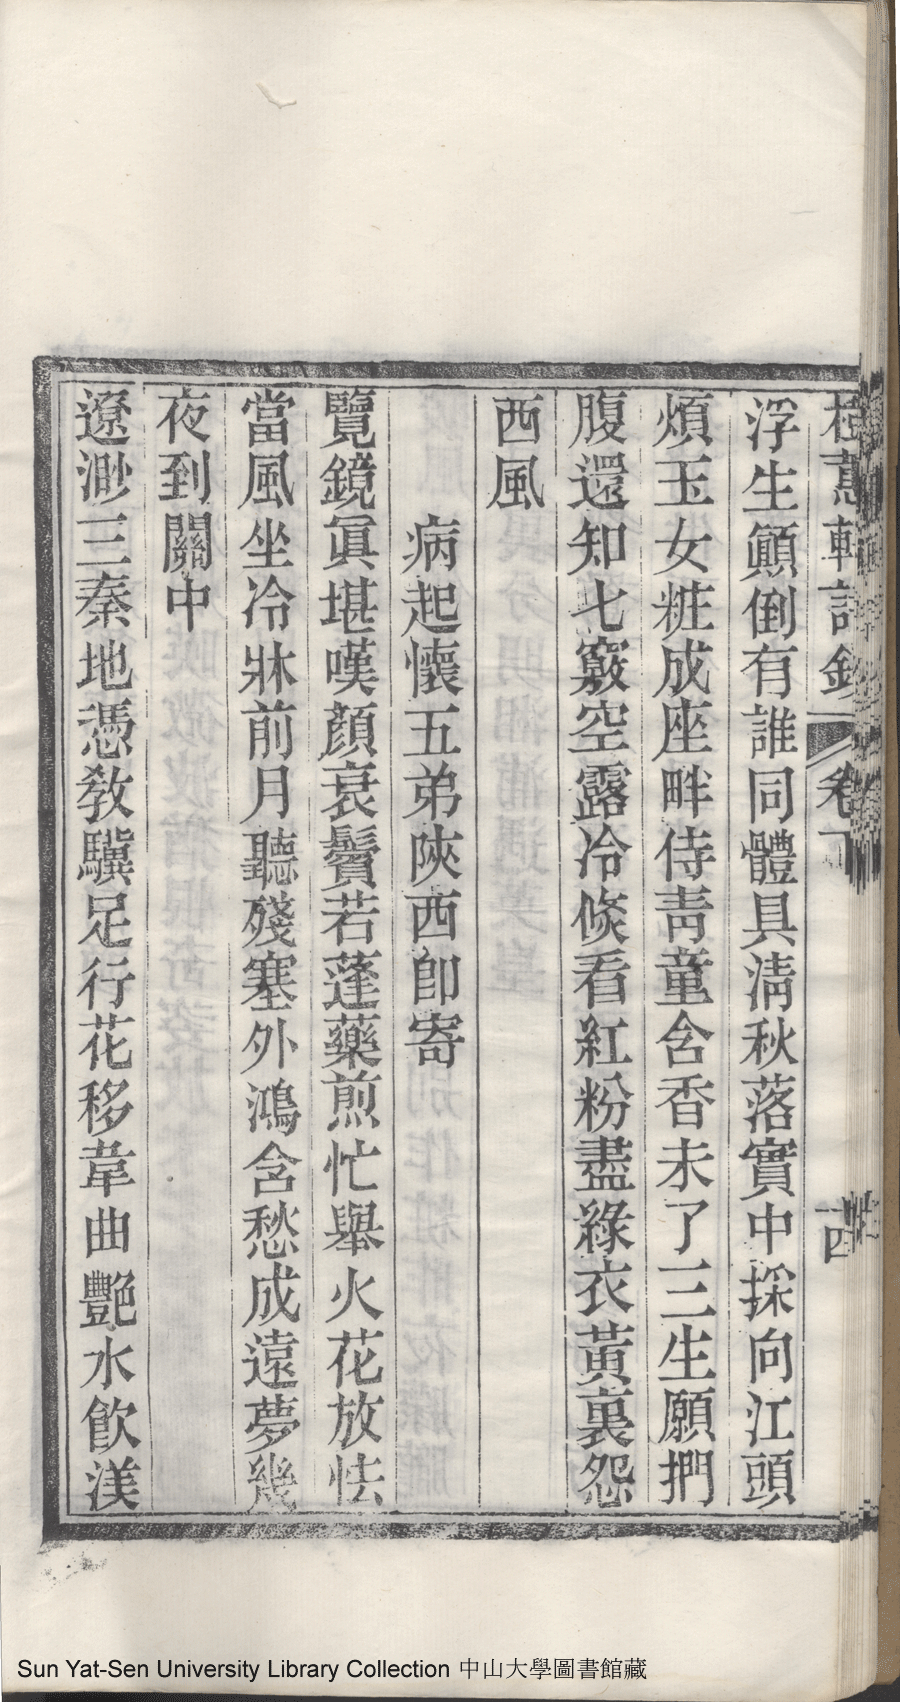 桂蕙軒詩鈔 卷下 十四
浮生顚倒有誰同體具淸秋落實中採向江頭
煩玉女粧成座畔侍靑童含香未了三生願捫
腹還知七竅空露冷倏看紅粉盡綠衣黃裏怨
西風
病起懷五弟陝西卽寄
覽鏡眞堪嘆顏衰鬢若蓬藥煎忙舉火花放怯
當風坐冷牀前月聽殘塞外鴻含愁成遠夢幾
夜到關中
遼渺三秦地憑敎驥足行花移韋曲艷水飮渼
Sun Yat-Sen University Library Collection 中山大學圖書館藏